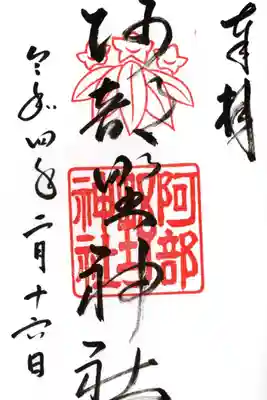 奉拝
阿部野神社
令和四年二月十六日
阿部
野
神社